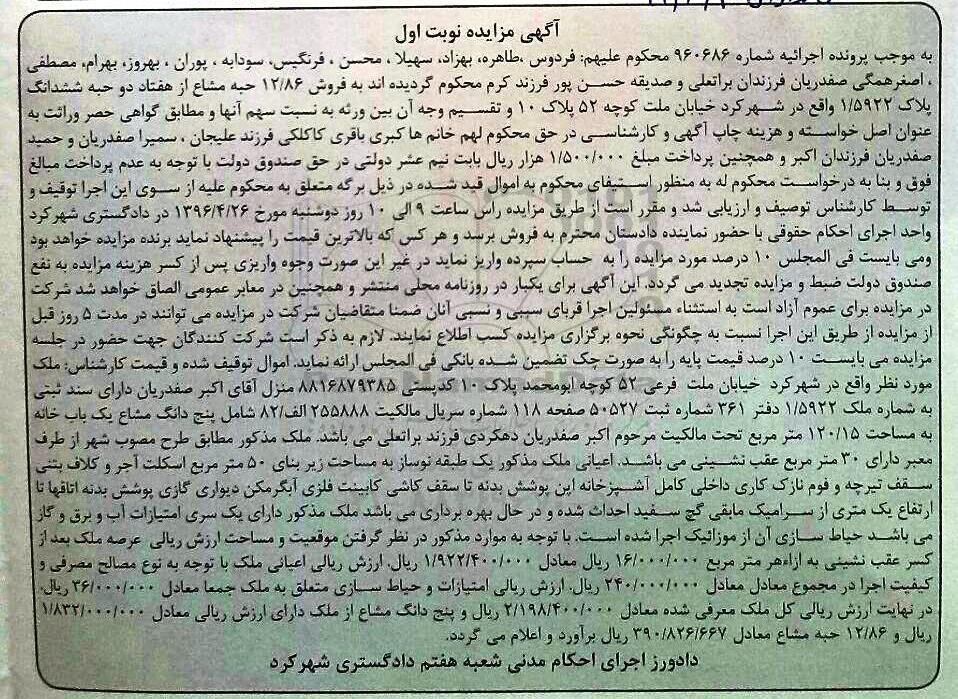 آگهی مزایده نوبت اول
به موجب پرونده اجرائیه شماره ۹۶۰۶۸۶ محکوم علیهم: فردوس ،طاهره، بهزاد، سهیلا ، محسن ، فرنگیس، سودابه ، پوران ، بهروز، بهرام، مصطفی
، اصغرهمگی صفدریان فرزندان براتعلی و صدیقه حسن پور فرزند کرم محکوم گردیده اند به فروش ۱۲/۸۶ حبه مشاع از هفتاد دو حبه ششدانگ
پلاک ۱/۵۹۲۲ واقع در شهرکرد خیابان ملت کوچه ۵۲ پلاک ۱۰ و تقسیم وجه آن بین ورثه به نسبت سهم آنها و مطابق گواهی حصر وراثت به
عنوان اصل خواسته و هزینه چاپ آگهی و کارشناسی در حق محکوم لهم خانم ها کبری باقری کاکلکی فرزند علیجان ، سمیرا صفدریان و حمید
صفدریان فرزندان اکبر و همچنین پرداخت مبلغ ۱/۵۰۰/۰۰۰ هزار ریال بابت نیم عشر دولتی در حق صندوق دولت با توجه به عدم پرداخت مبالغ
فوق و بنا به درخواست محکوم له به منظور استیفای محکوم به اموال قید شده در ذیل برگه متعلق به محکوم علیه از سوی این اجرا توقیف و
توسط کارشناس توصیف و ارزیابی شد و مقرر است از طریق مزایده راس ساعت ۹ الی ۱۰ روز دوشنبه مورخ ۱۳۹۶/۴/۲۶ در دادگستری شهرکرد
واحد اجرای احکام حقوقی با حضور نماینده دادستان محترم به فروش برسد و هر کس که بالاترین قیمت را پیشنهاد نماید برنده مزایده خواهد بود
ومی بایست فی المجلس ۱۰ درصد مورد مزایده را به حساب سپرده واریز نماید در غیر این صورت وجوه واریزی پس از کسر هزینه مزایده به نفع
صندوق دولت ضبط و مزایده تجدید می گردد. این آگهی برای یکبار در روزنامه محلی منتشر و همچنین در معابر عمومی الصاق خواهد شد شرکت
در مزایده برای عموم آزاد است به استثناء مسئولین اجرا قربای سببی و نسبی آنان ضمنا متقاضیان شرکت در مزایده می توانند در مدت ۵ روز قبل
از مزایده از طریق این اجرا نسبت به چگونگی نحوه برگزاری مزایده کسب اطلاع نمایند. لازم به ذکر است شرکت کنندگان جهت حضور در جلسه
مزایده می بایست ۱۰ درصد قیمت پایه را به صورت چک تضمین شده بانکی فی المجلس ارائه نماید. اموال توقیف شده و قیمت کارشناس: ملک
مورد نظر واقع در شهرکرد خیابان ملت فرعی ۵۲ کوچه ابومحمد پلاک ۱۰ کدپستی ۸۸۱۶۸۷۹۳۸۵ منزل آقای اکبر صفدریان دارای سند ثبتی
به شماره ملک ۱/۵۹۲۲ دفتر ۳۶۱ شماره ثبت ۵۰۵۲۷ صفحه ۱۱۸ شماره سریال مالکیت ۲۵۵۸۸۸ الف/۸۲ شامل پنج دانگ مشاع یک باب خانه
به مساحت ۱۲۰/۱۵ متر مربع تحت مالکیت مرحوم اکبر صفدریان دهکردی فرزند براتعلی می باشد. ملک مذکور مطابق طرح مصوب شهر از طرف
معبر دارای ۳۰ متر مربع عقب نشینی می باشد. اعیانی ملک مذکور یک طبقه نوساز به مساحت زیر بنای ۵۰ متر مربع اسکلت آجر و کلاف بتنی
سقف تیرچه و فوم نازک کاری داخلی کامل آشپزخانه این پوشش بدنه تا سقف کاشی کابینت فلزی آبگرمکن دیواری گازی پوشش بدنه اتاقها تا
ارتفاع یک متری از سرامیک مابقی گچ سفید احداث شده و در حال بهره برداری می باشد ملک مذکور دارای یک سری امتیازات آب و برق و گاز
می باشد حیاط سازی آن از موزائیک اجرا شده است. با توجه به موارد مذکور در نظر گرفتن موقعیت و مساحت ارزش ریالی عرصه ملک بعد از
کسر عقب نشینی به ازاءهر متر مربع ۱۶/۰۰۰/۰۰۰ ریال معادل ۱/۹۲۲/۴۰۰/۰۰۰ ریال. ارزش ریالی اعیانی ملک با توجه به نوع مصالح مصرفی و
کیفیت اجرا در مجموع معادل معادل ۲۴۰/۰۰۰/۰۰۰ ریال. ارزش ریالی امتیازات و حیاط سازی متعلق به ملک جمعا معادل ۳۶/۰۰۰/۰۰۰ ریال.
در نهایت ارزش ریالی کل ملک معرفی شده معادل ۲/۱۹۸/۴۰۰/۰۰۰ ریال و پنج دانگ مشاع از ملک دارای ارزش ریالی معادل ۱/۸۳۲/۰۰۰/۰۰۰
ریال و ۱۲/۸۶ حبه مشاع معادل ۳۹۰/۸۲۶/۶۶۷ ریال برآورد و اعلام می گردد.
دادورز اجرای احکام مدنی شعبه هفتم دادگستری شهرکرد